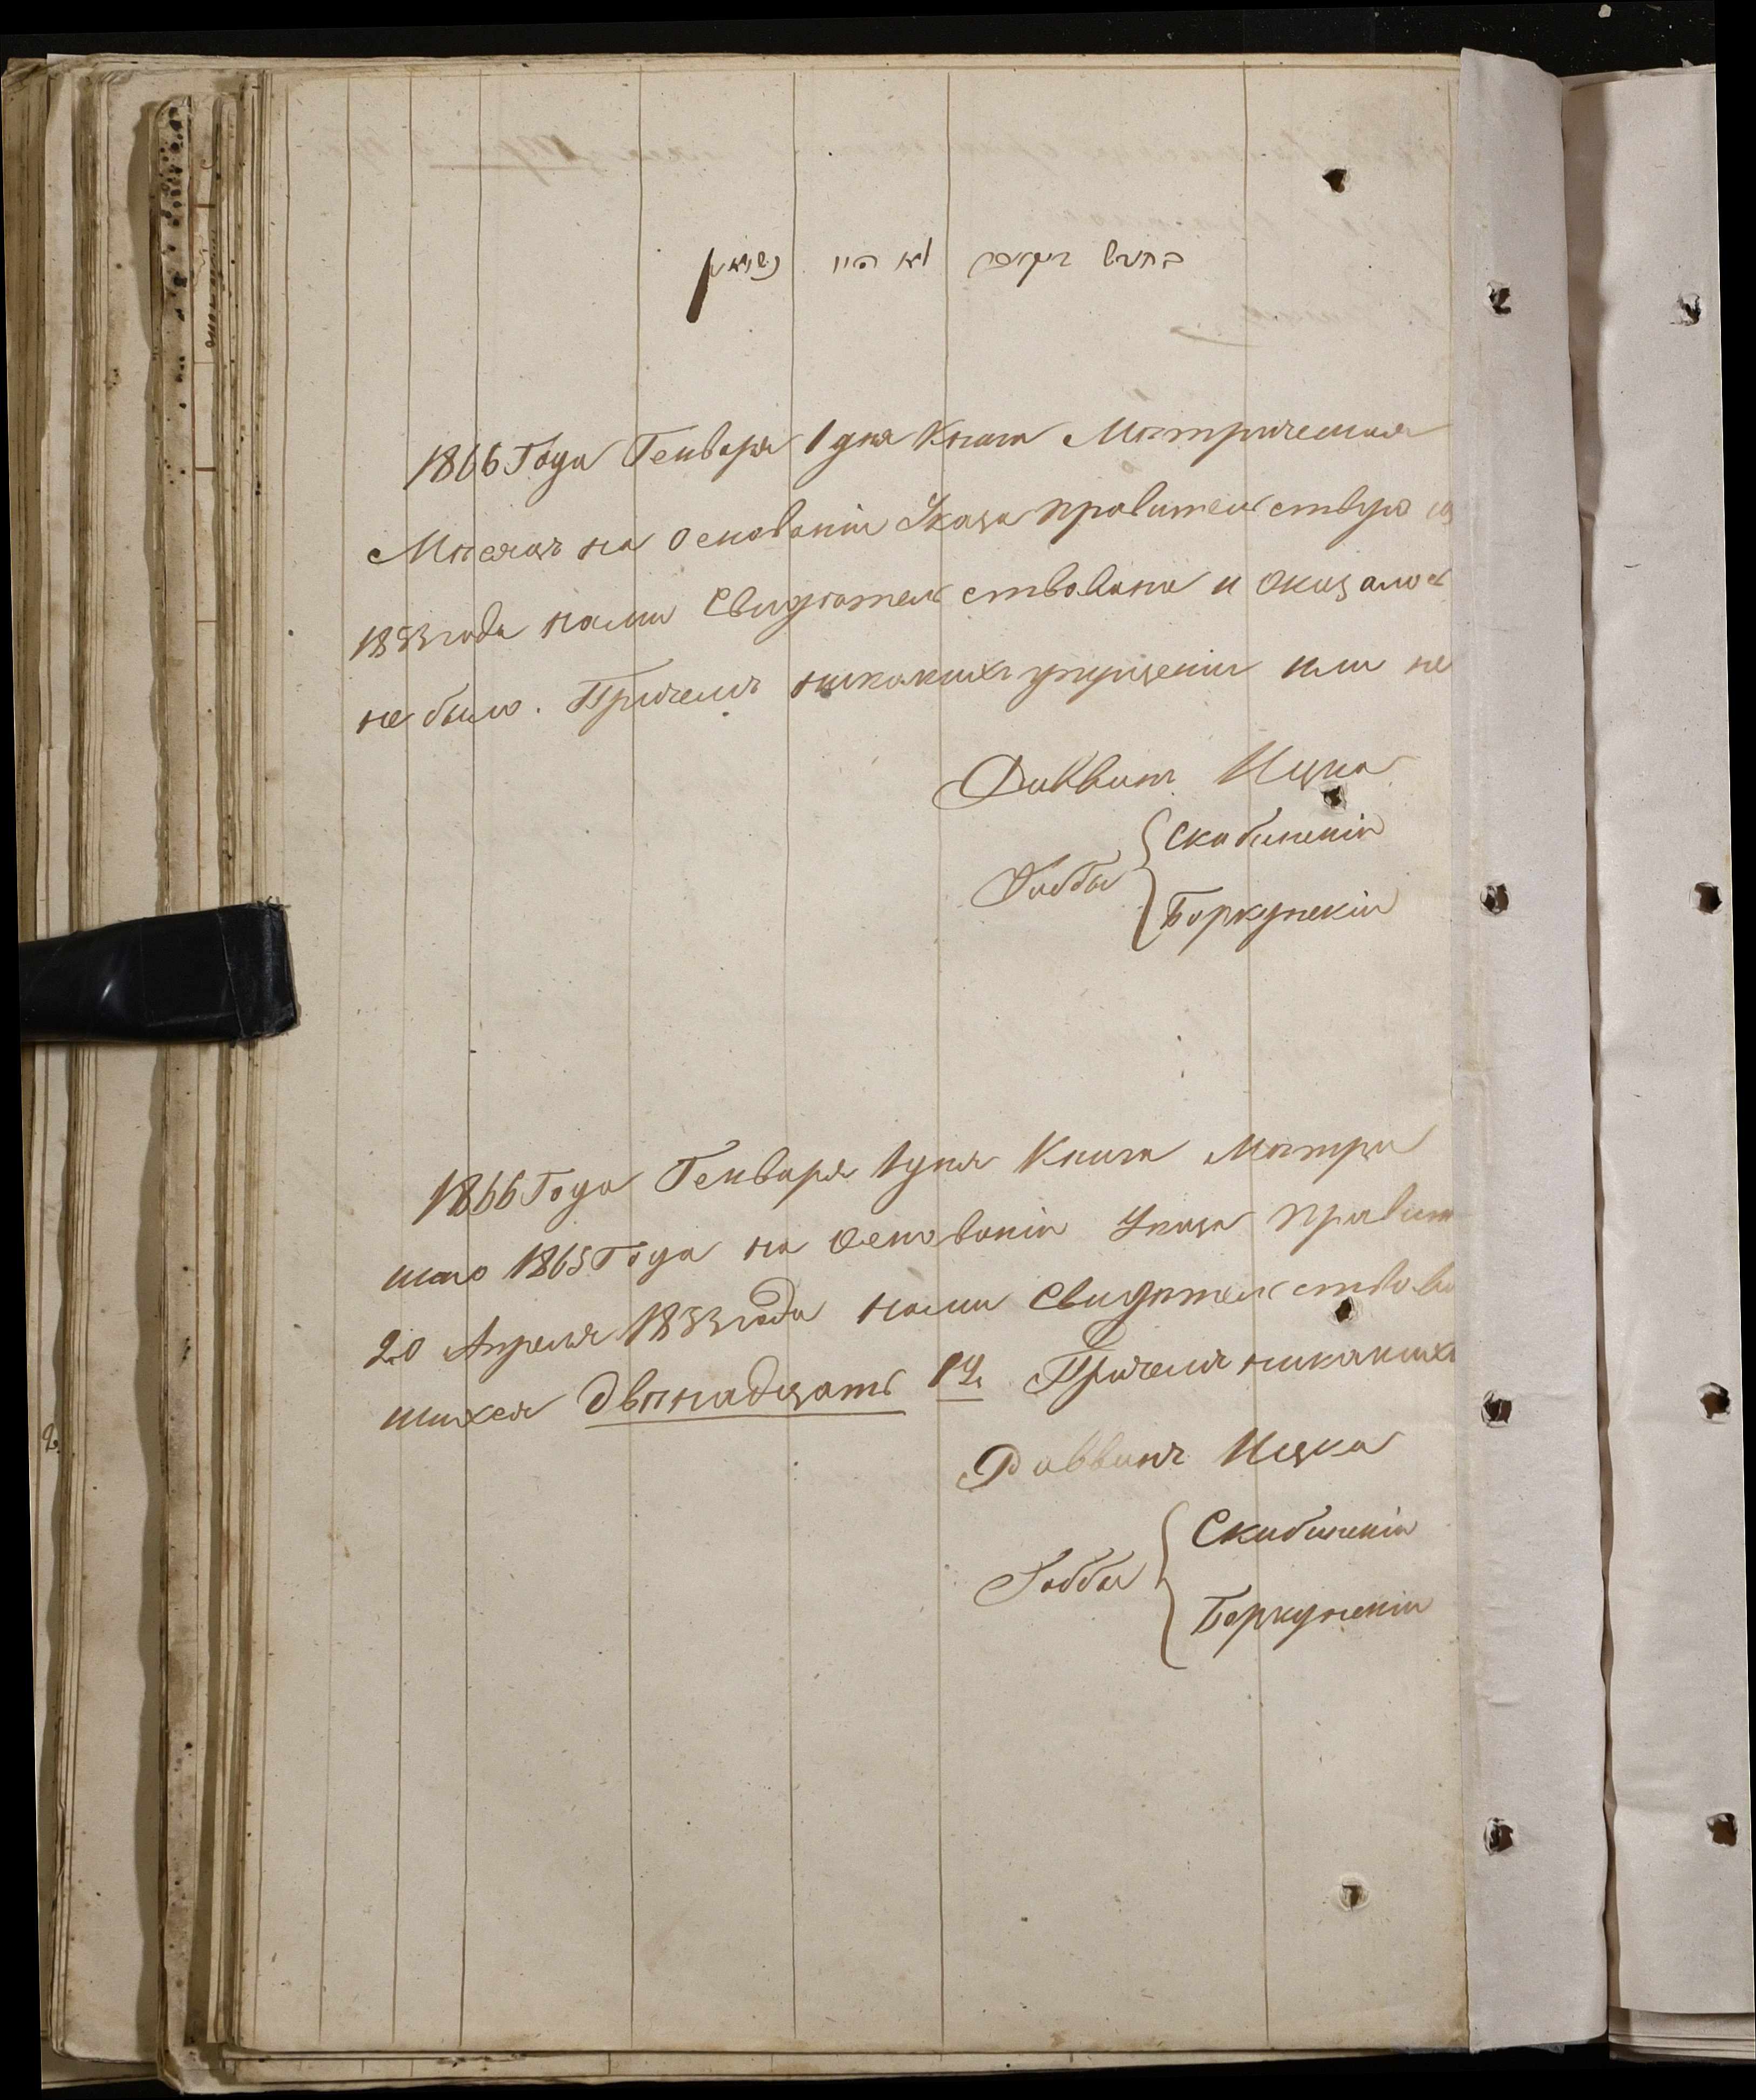 בחודש דיקאבר לא היו נשואין
1866 Года Генваря 1 дня Книга Мѣтрическая
Мѣсяцъ на основаніи Указа правительствую
1833 года нами Свидѣтельствована и оказалось
не было. Причемъ никакихъ упущеніи или не
Раввинъ Ицка
Скабинскій
Габбы
Боркунскій
1866 Года Генваря 1 дня Книга Мѣтри
шаго 1865 Года на основаніи Указа Правит
20 Апреля 1833 года нами Свидѣтельствова
шихся двѣнадцать 12. Причемъ никакихъ
Раввинъ Ицка
Скабинскій
Габбы
Боркунскій